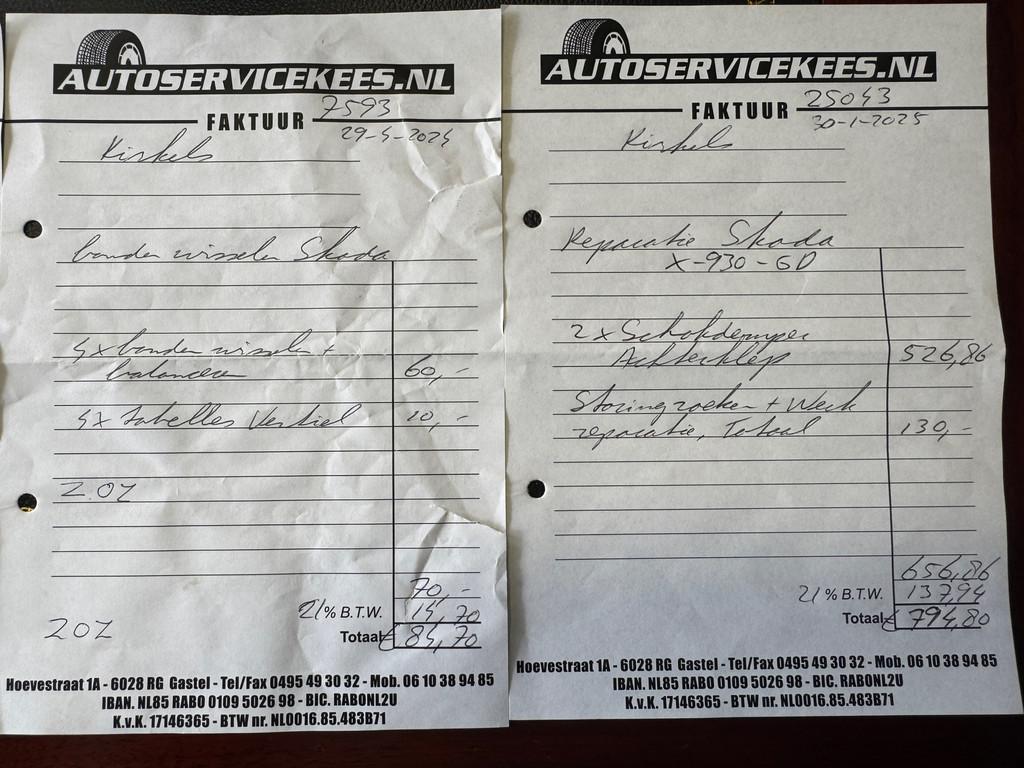 AUTOSERVICEKEES.NL
FAKTUUR 7593
29-4-2024
Kirkels
banden wisselen Skoda
4x banden wisselen +
balanceren 60,-
4x Ventiel 10,-
70,-
21% B.T.W. 14,70
Totaal € 84,70
Hoevestraat 1A - 6028 RG Gastel - Tel/Fax 0495 49 30 32 - Mob. 06 10 38 94 85
IBAN. NL85 RABO 0109 5026 98 - BIC. RABONL2U
K.v.K. 17146365 - BTW nr. NL0016.85.483B71
AUTOSERVICEKEES.NL
FAKTUUR 25043
30-1-2025
Kirkels
Reparatie Skoda
X-930-GD
2x Schokdemper
Achterklep 526,86
Storing zoeken + Werk
reparatie, Totaal 130,-
656,86
21% B.T.W. 137,94
Totaal € 794,80
Hoevestraat 1A - 6028 RG Gastel - Tel/Fax 0495 49 30 32 - Mob. 06 10 38 94 85
IBAN. NL85 RABO 0109 5026 98 - BIC. RABONL2U
K.v.K. 17146365 - BTW nr. NL0016.85.483B71